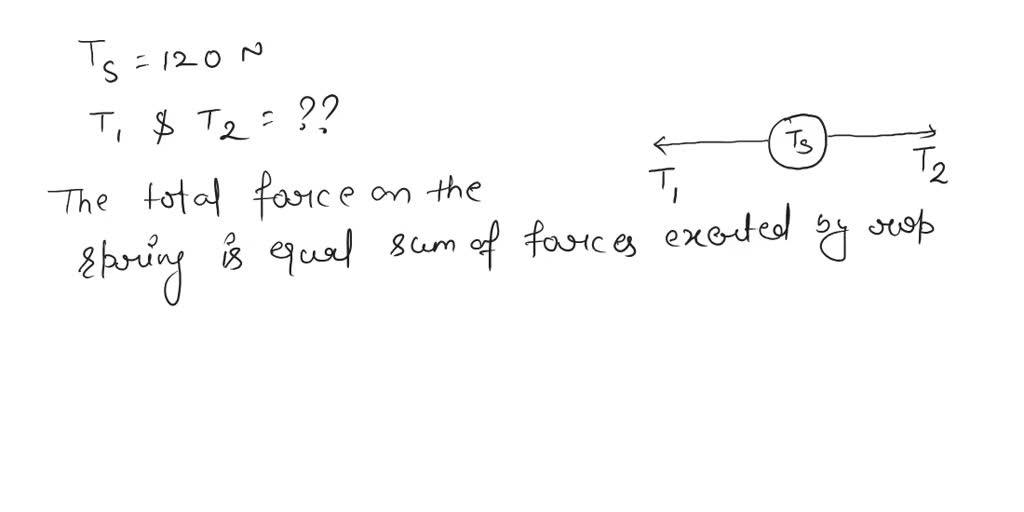 Ts = 120 N
T1 $ T2 = ??
Ts
T1
T2
The total force on the
spring is equal sum of forces exerted by rop